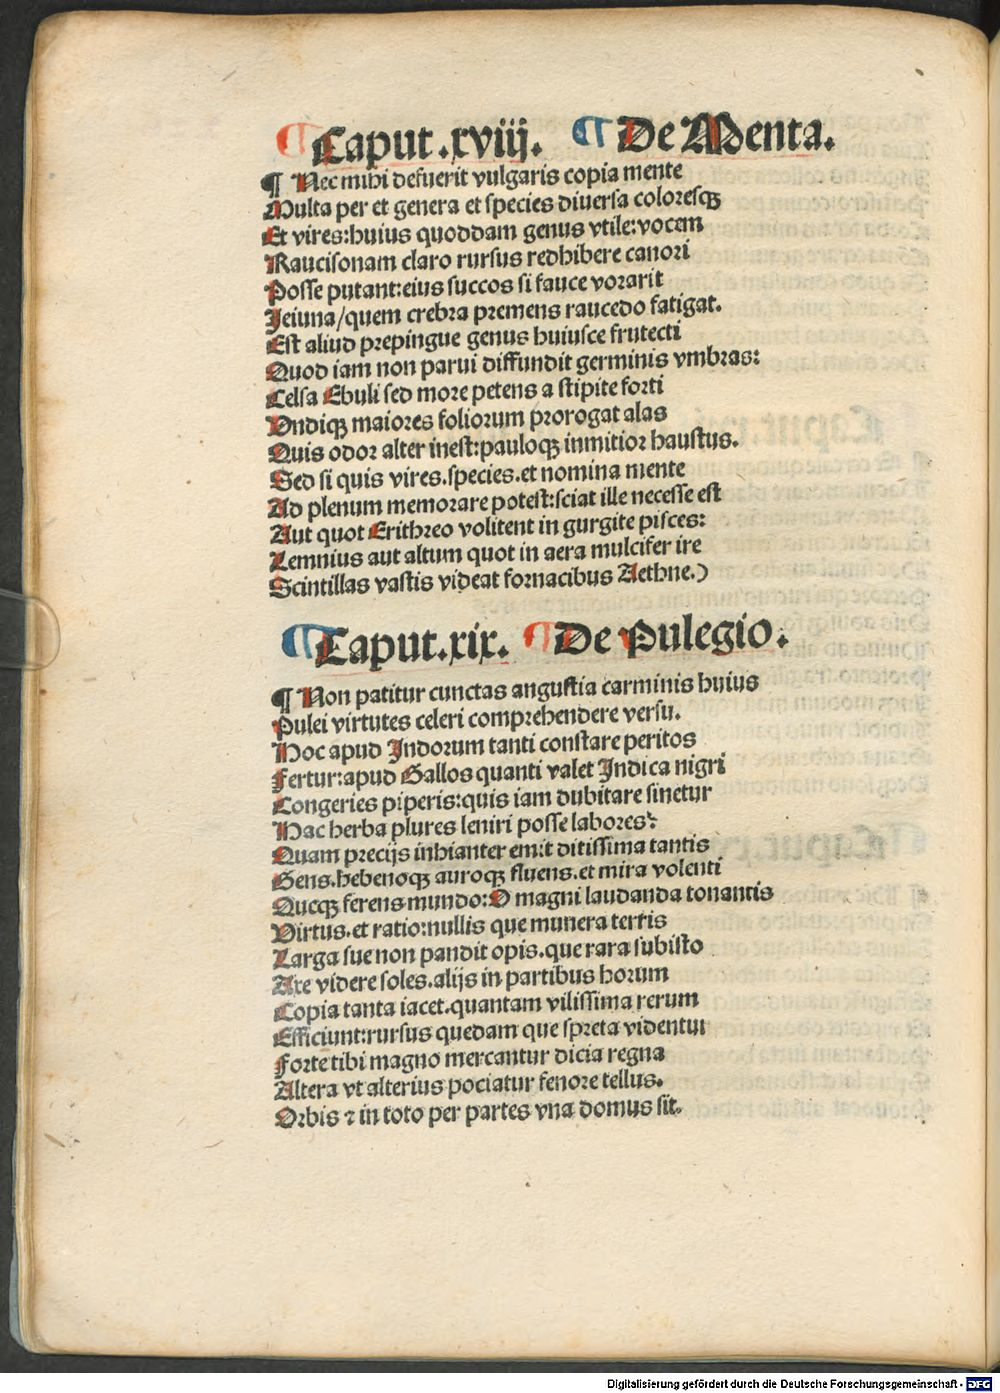 ¶ Caput .xviij. ¶ De Menta.
¶ Nec mihi defuerit vulgaris copia mente
Multa per et genera et species diuersa coloresqꝫ
Et vires: huius quoddam genus vtile: vocem
Raucisonam claro rursus redhibere canori
Posse putant: eius succos si fauce vorarit
Jeiuna/quem crebra premens raucedo fatigat.
Est aliud prepingue genus huiusce frutecti
Quod iam non parui diffundit germinis vmbras:
Celsa Ebuli sed more petens a stipite forti
Vndiqꝫ maiores foliorum prorogat alas
Quis odor alter inest: pauloqꝫ inmitior haustus.
Sed si quis vires.species.et nomina mente
Ad plenum memorare potest: sciat ille necesse est
Aut quot Erithreo volitent in gurgite pisces:
Lemnius aut altum quot in aera mulcifer ire
Scintillas vastis videat fornacibus Aethne.)
¶ Caput.xix. ¶ De Pulegio.
¶ Non patitur cunctas angustia carminis huius
Pulei virtutes celeri comprehendere versu.
Hoc apud Indorum tanti constare peritos
Fertur: apud Gallos quanti valet Indica nigri
Congeries piperis: quis iam dubitare sinetur
Hac herba plures leniri posse labores?
Quam precijs inhianter emit ditissima tantis
Gens.hebenoqꝫ auroqꝫ fluens.et mira volenti
Queqꝫ ferens mundo: O magni laudanda tonantis
Virtus.et ratio: nullis que munera terris
Larga sue non pandit opis.que rara sub isto
Axe videre soles.alijs in partibus horum
Copia tanta iacet.quantam vilissima rerum
Efficiunt: rursus quedam que spreta videntur
Forte tibi magno mercantur dicia regna
Altera vt alterius pociatur fenore tellus.
Orbis ⁊ in toto per partes vna domus sit.
Digitalisierung gefördert durch die Deutsche Forschungsgemeinschaft - DFG